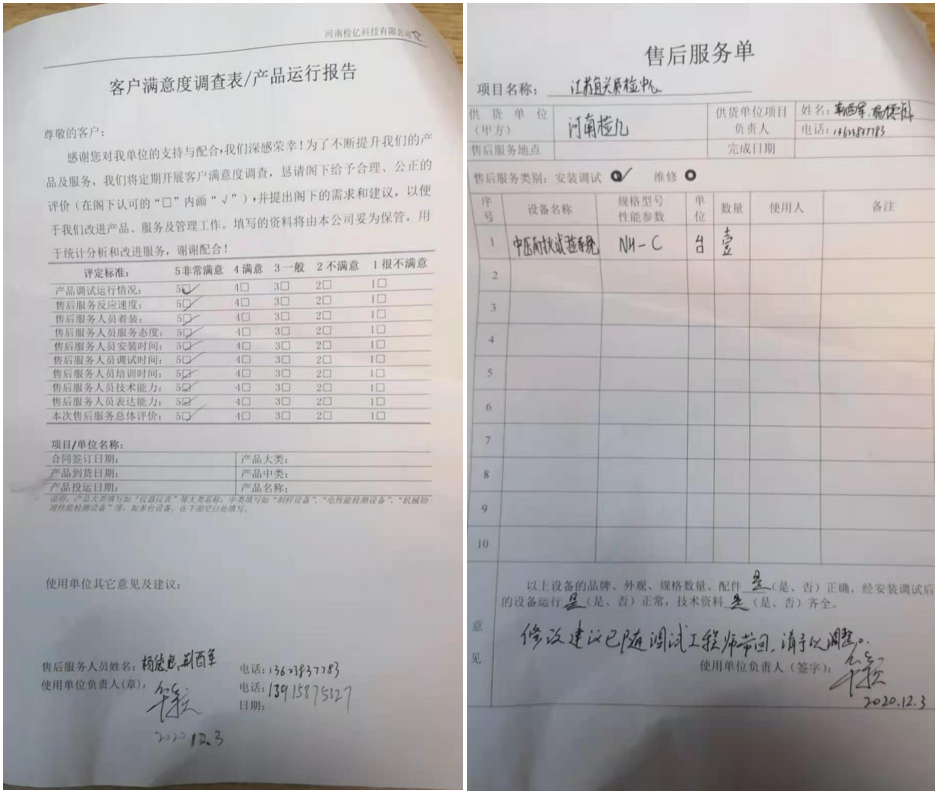 河南检亿科技有限公司
客户满意度调查表/产品运行报告
尊敬的客户：
感谢您对我单位的支持与配合,我们深感荣幸!为了不断提升我们的产
品及服务，我们将定期开展客户满意度调查，恳请阁下给予合理、公正的
评价（在阁下认可的“□”内画“√”）,并提出阁下的需求和建议，以便
于我们改进产品、服务及管理工作。填写的资料将由本公司妥为保管，用
于统计分析和改进服务，谢谢配合！
评定标准： 5非常满意 4满意 3一般 2不满意 1很不满意
产品调试运行情况： 5□✓ 4□ 3□ 2□ 1□
售后服务反应速度： 5□✓ 4□ 3□ 2□ 1□
售后服务人员着装： 5□✓ 4□ 3□ 2□ 1□
售后服务人员服务态度： 5□✓ 4□ 3□ 2□ 1□
售后服务人员安装时间： 5□✓ 4□ 3□ 2□ 1□
售后服务人员调试时间： 5□✓ 4□ 3□ 2□ 1□
售后服务人员培训时间： 5□✓ 4□ 3□ 2□ 1□
售后服务人员技术能力： 5□✓ 4□ 3□ 2□ 1□
售后服务人员表达能力： 5□✓ 4□ 3□ 2□ 1□
本次售后服务总体评价： 5□✓ 4□ 3□ 2□ 1□
项目/单位名称：
合同签订日期： 产品大类：
产品到货日期： 产品中类：
产品投运日期： 产品名称：
说明：产品大类填写如“仪器仪表”等大类名称，中类填写如“制样设备”、“电性能检测设备”、“机械物
理性能检测设备”等，如多台设备，在下面空白处填写。
使用单位其它意见及建议：
售后服务人员姓名： 电话：13623837783
使用单位负责人(章)： 电话：13915875527
日期：
2020.12.3
售后服务单
项目名称： 江苏宜兴质检中心
供货单位（甲方） 河南检亿 供货单位项目负责人 姓名：
电话：13623837783
售后服务地点 完成日期
售后服务类别：安装调试 ✓ 维修
序号 设备名称 规格型号性能参数 单位 数量 使用人 备注
1 中压耐火试验系统 NH-C 台 壹
2
3
4
5
6
7
8
9
10
以上设备的品牌、外观、规格数量、配件 是（是、否）正确，经安装调试后
的设备运行 是（是、否）正常，技术资料 是（是、否）齐全。
意见
修改建议已随调试工程师带回，请予以调整。
使用单位负责人（签字）：
2020.12.3